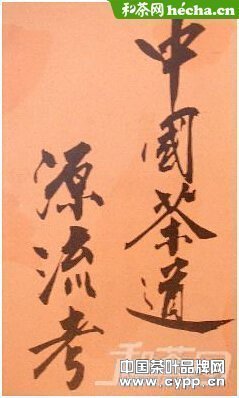 和茶网
hecha.cn
中國茶道
源流考
和茶网
中国茶叶品牌网
www.cypp.cn